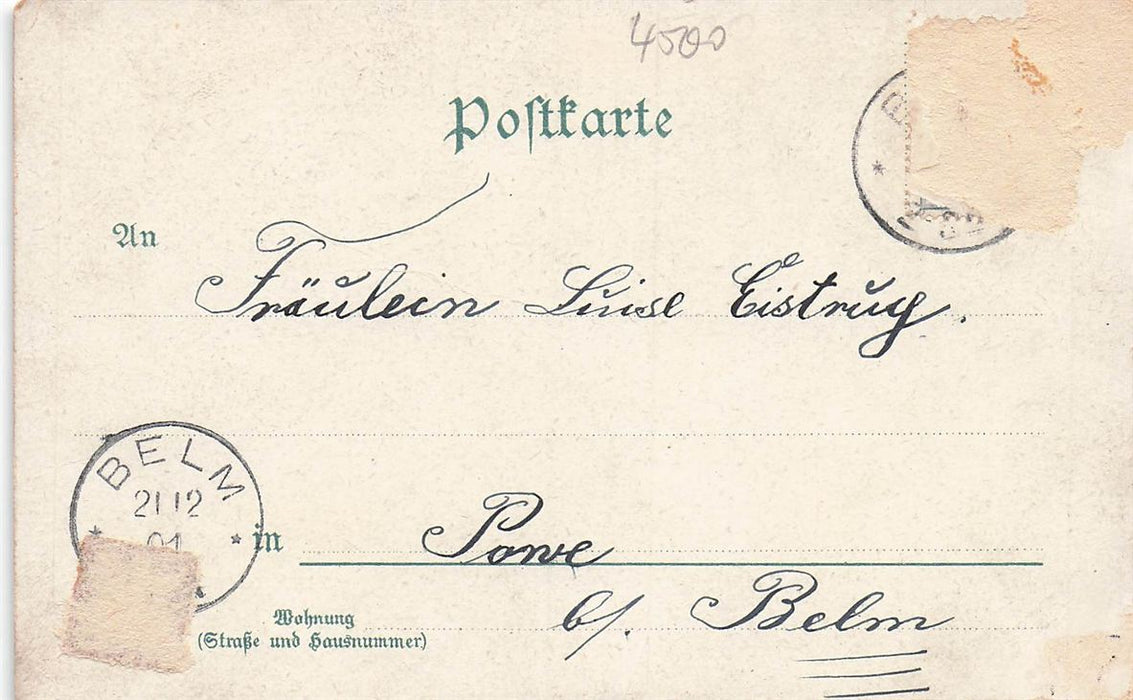 4500
Postkarte
An
Fräulein Luise Eistrug.
BELM
21 12
01
in Powe
Wohnung
(Straße und Hausnummer)
b/. Belm